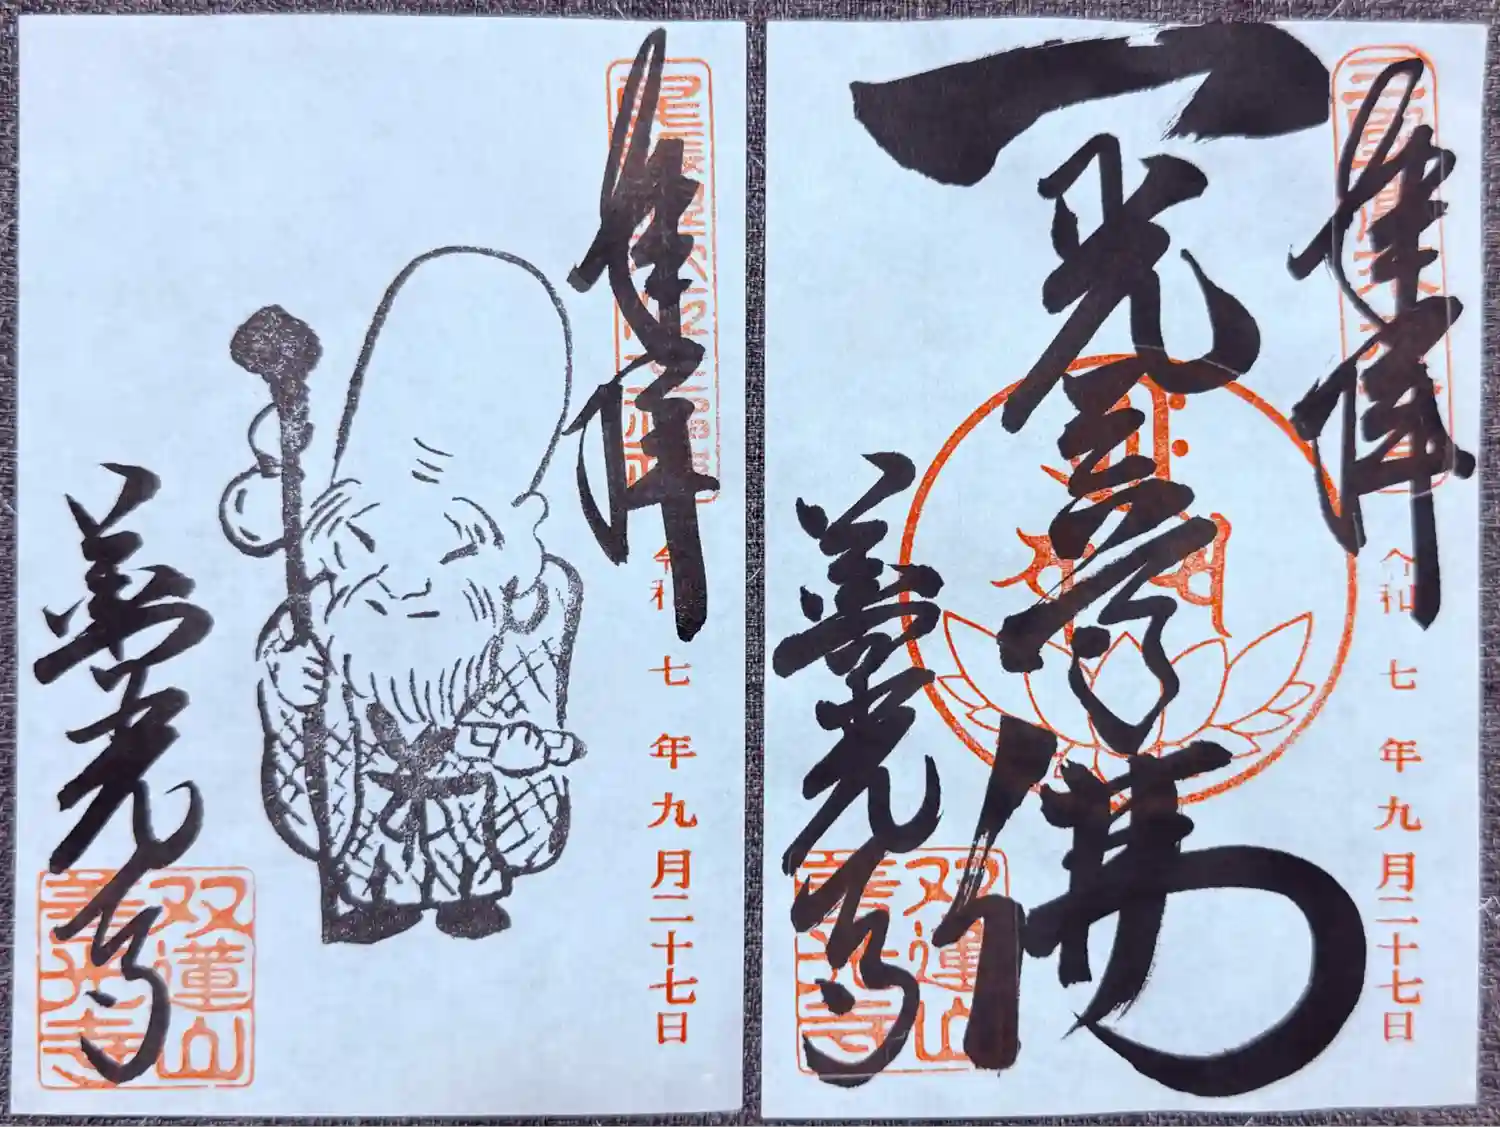 奉拝
令和七年九月二十七日
善光寺
双蓮山
善光寺
奉拝
令和七年九月二十七日
一光三尊佛
善光寺
双蓮山
善光寺